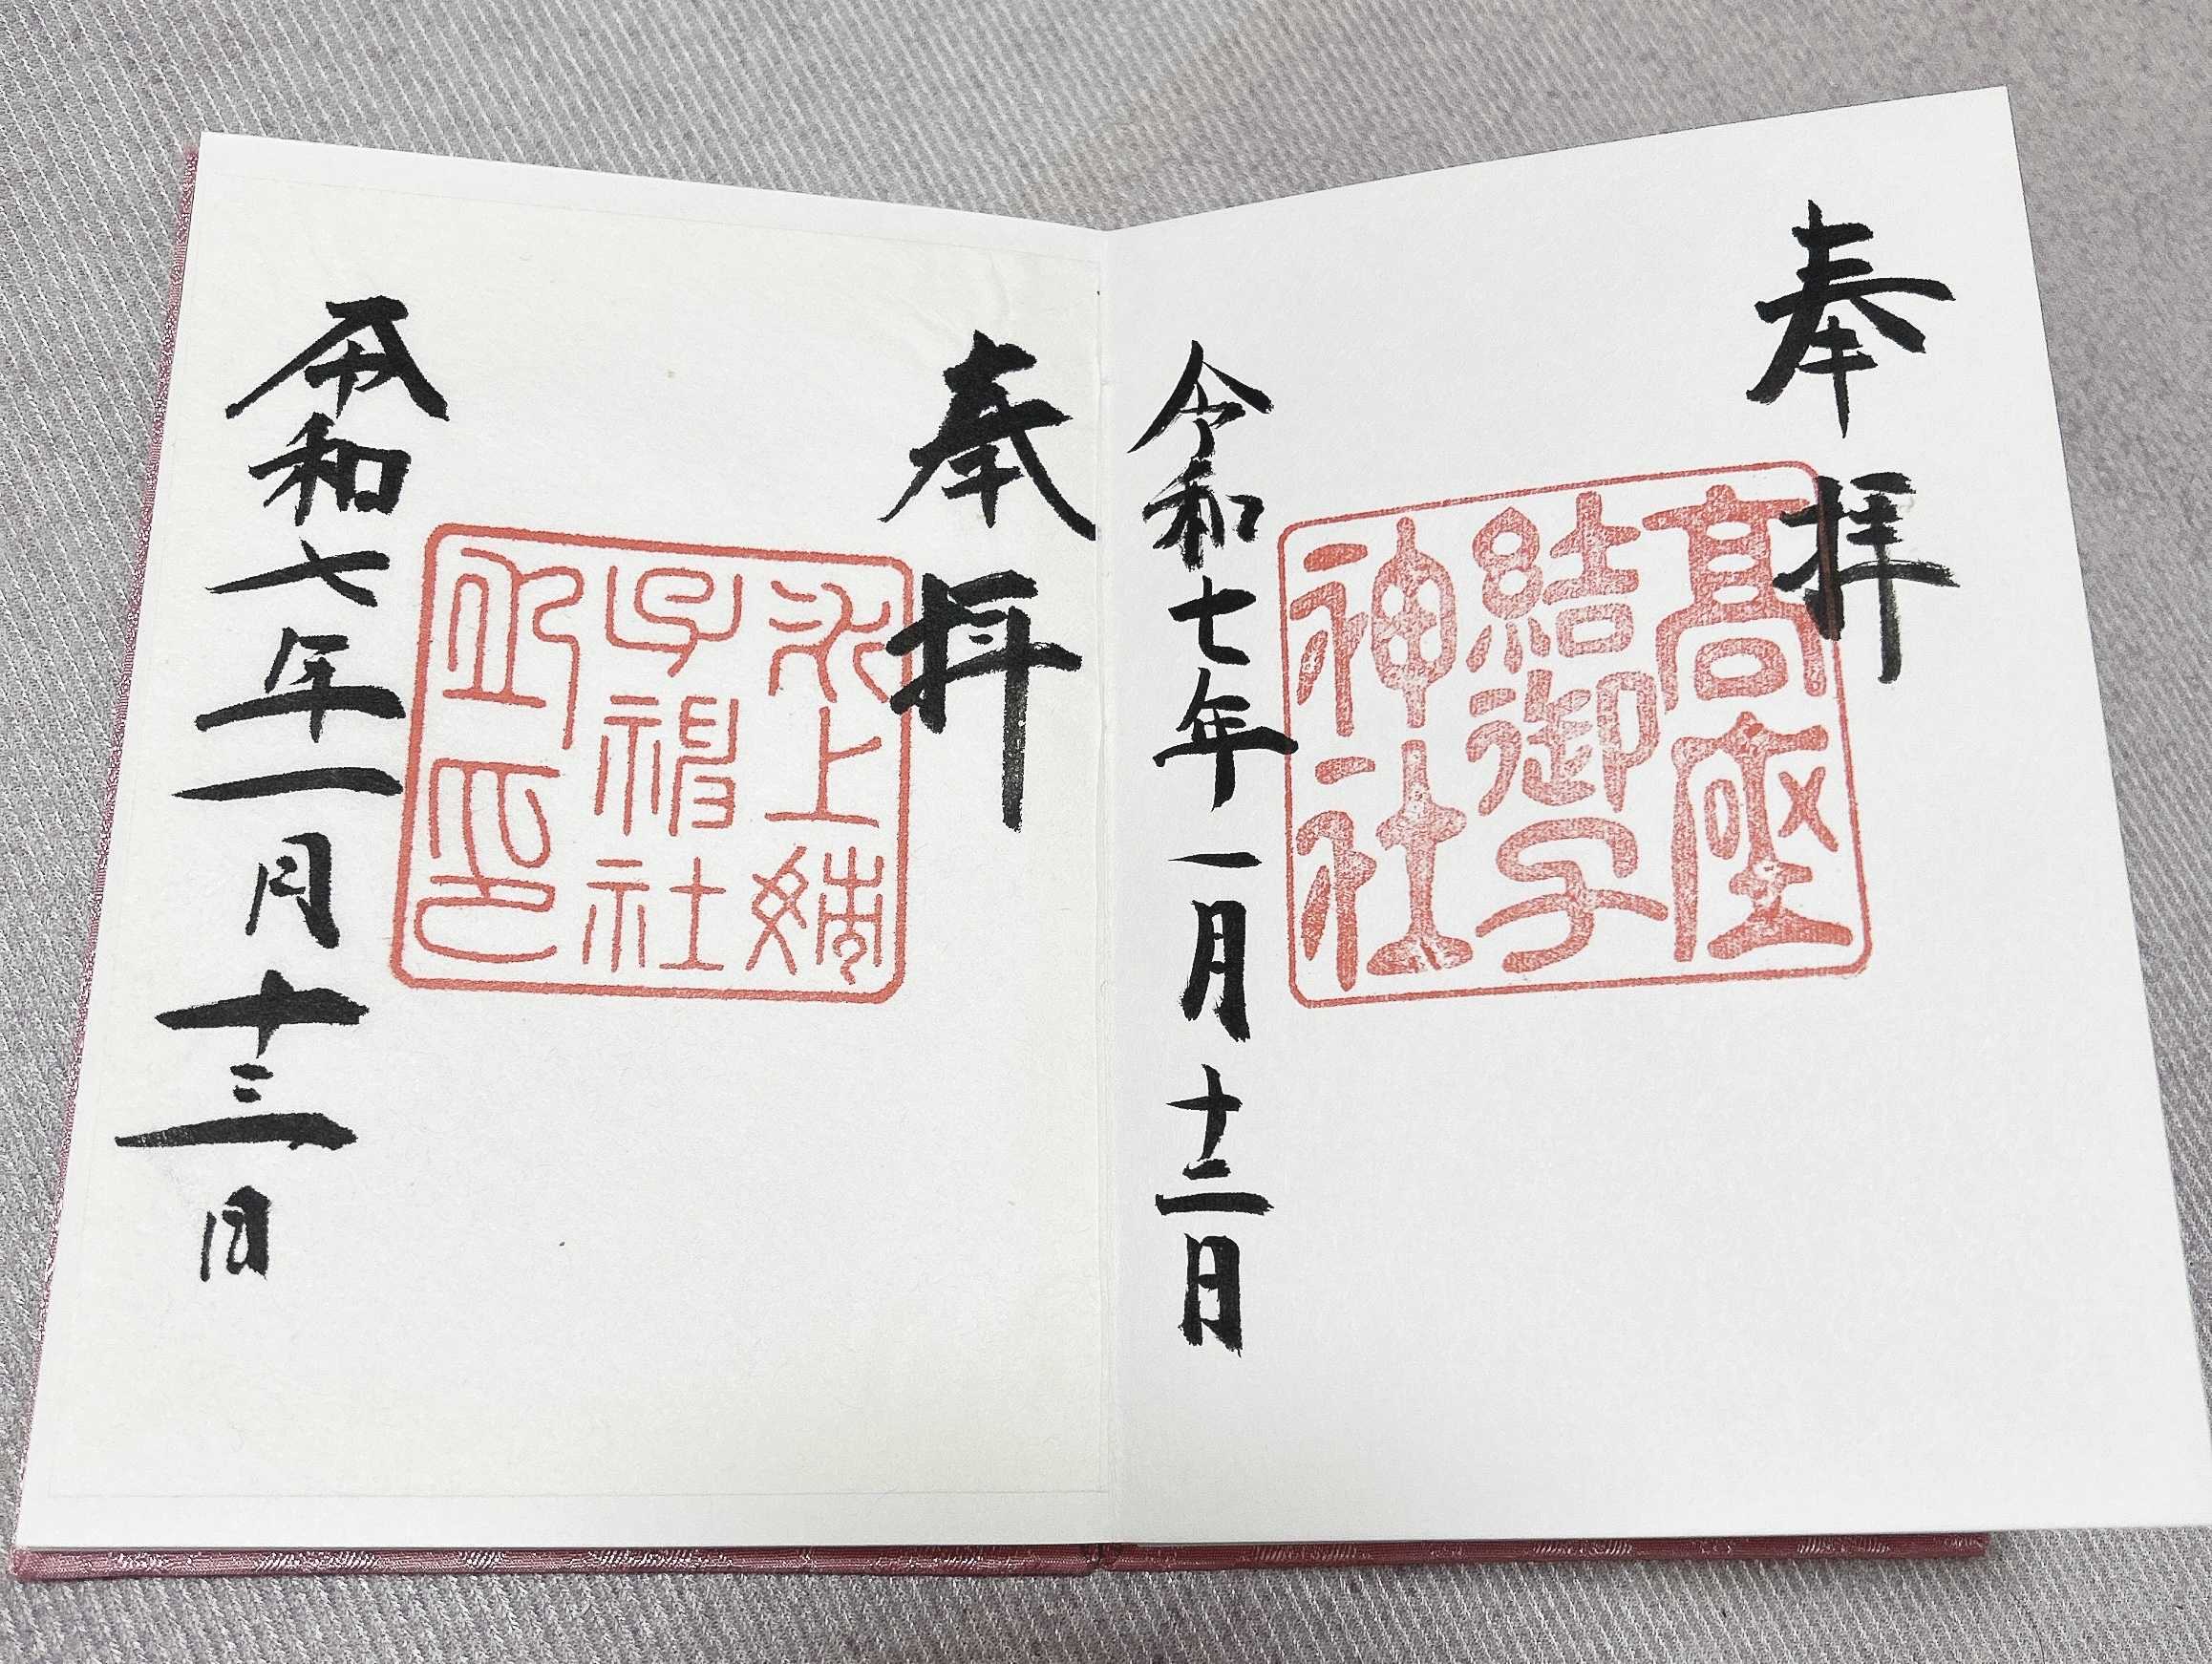 奉拝
高座
結御子
神社
令和七年一月十二日
奉拝
氷上姉
子神社
之印
令和七年一月十三日